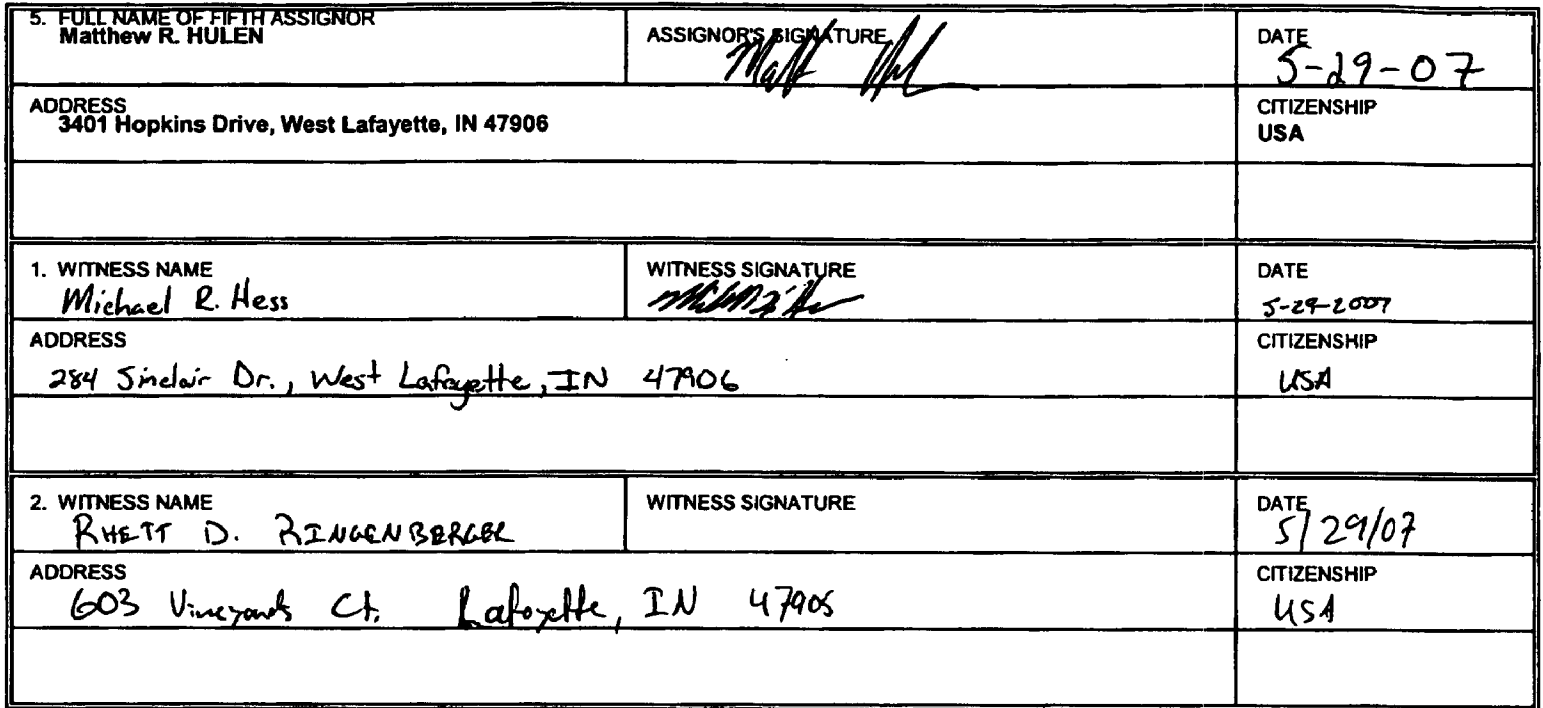 5. FULL NAME OF FIFTH ASSIGNOR
Matthew R. HULEN
ASSIGNOR'S SIGNATURE
Matt
DATE
5-29-07
ADDRESS
3401 Hopkins Drive, West Lafayette, IN 47906
CITIZENSHIP
USA
1. WITNESS NAME
Michael R. Hess
WITNESS SIGNATURE
DATE
5-29-2007
ADDRESS
284 Sinclair Dr., West Lafayette, IN 47906
CITIZENSHIP
USA
2. WITNESS NAME
RHETT D. RINGENBERGER
WITNESS SIGNATURE
DATE
5/29/07
ADDRESS
603 Vineyards Ct. Lafayette, IN 47905
CITIZENSHIP
USA